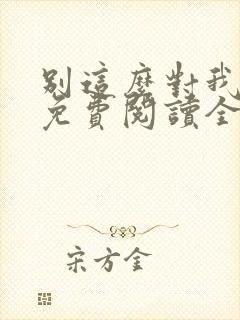 別這麼對我
免費閱讀全
宋方金